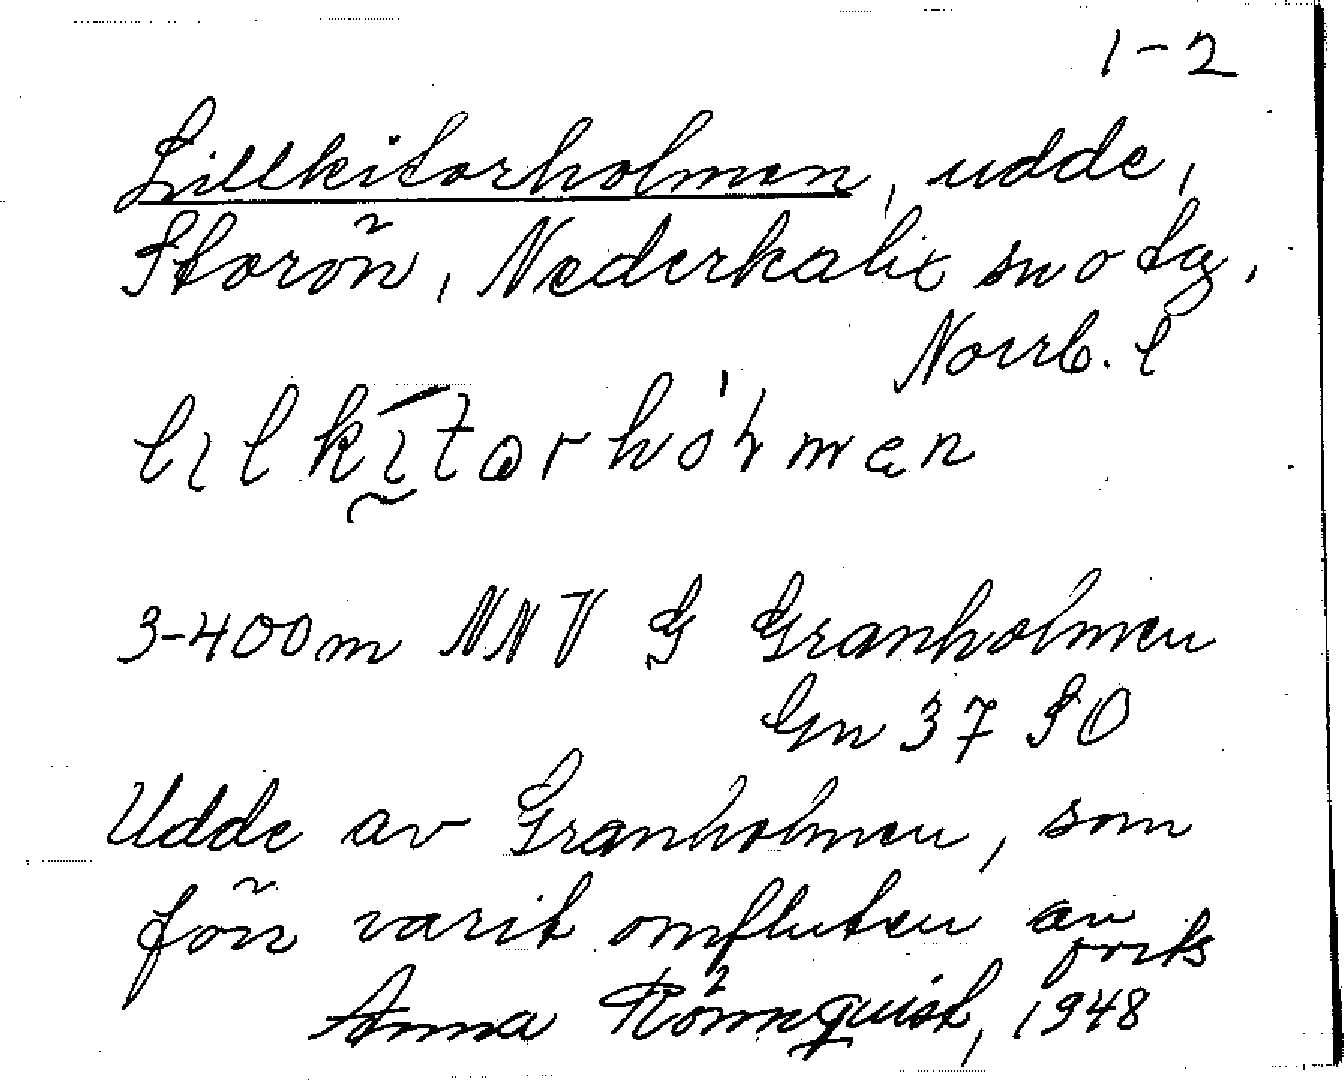 1-2
Lillkitarholmen, udde,
Storön, Nederkalix sn o tg,
Norrb. l
3-400m NNV G Granholmen
Gn 37 SO
Udde av Granholmen, som
förr varit omfluten av
forts
Anna Rönnquist, 1948